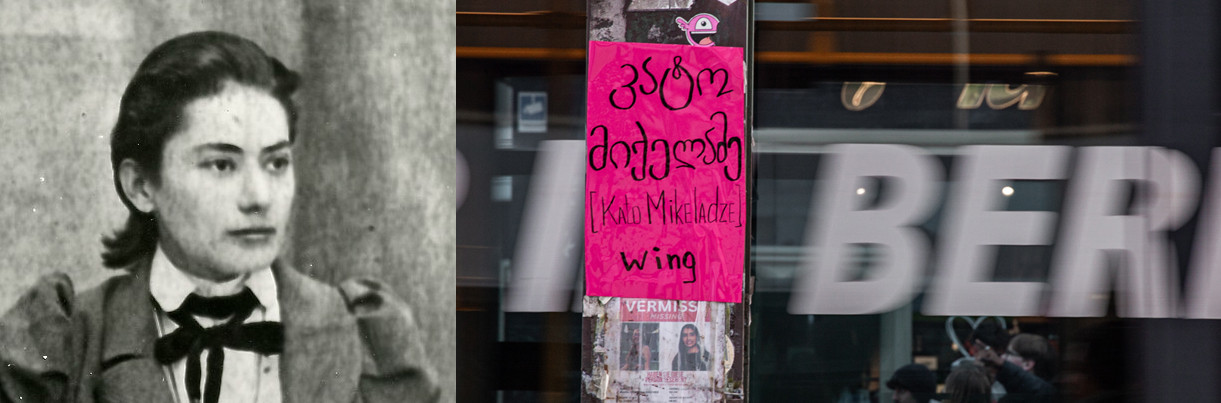 კატო
მიქელაძე
[Kato Mikeladze]
wing
VERMISST
MISSING
BER